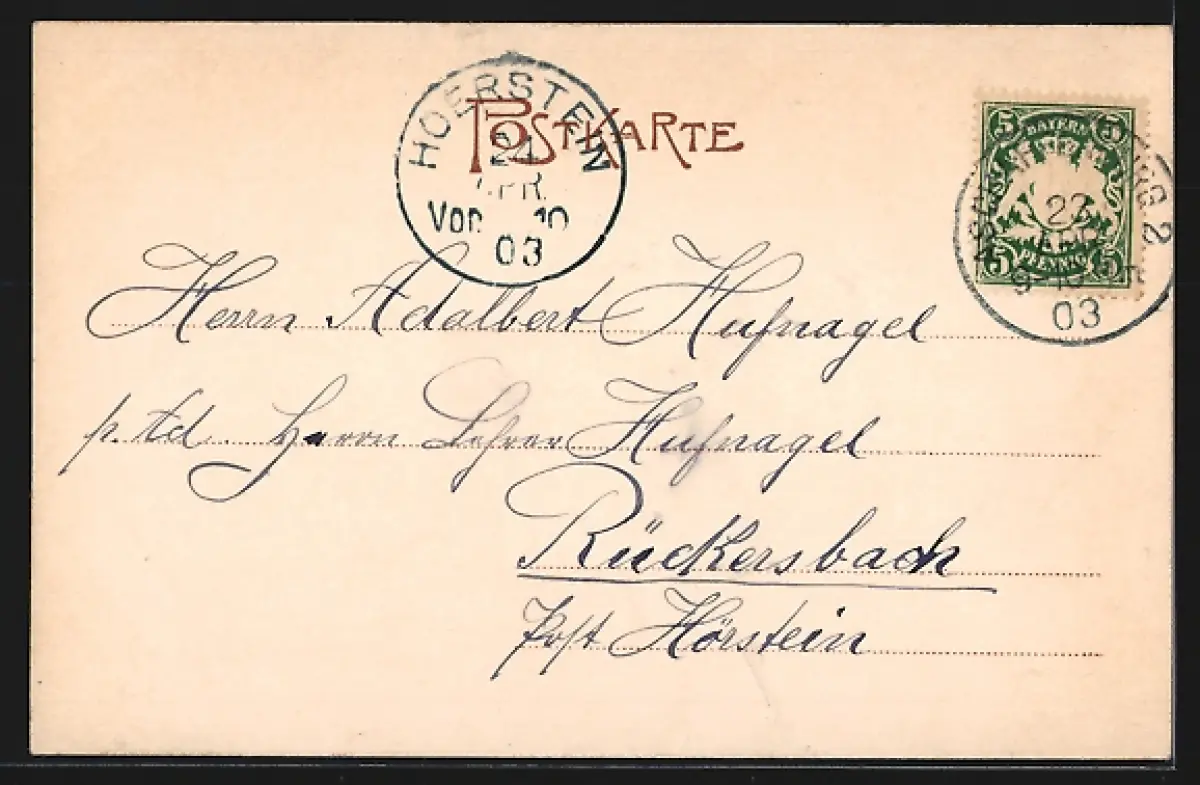 POSTKARTE
HOERSTEIN
24
APR.
Vor 10
03
5 BAYERN 5
5 PFENNIG 5
23
APR
9-10
03
2
Herrn Adalbert Hufnagel
p. Ad. Herrn Lehrer Hufnagel
Rückersbach
Post Hörstein